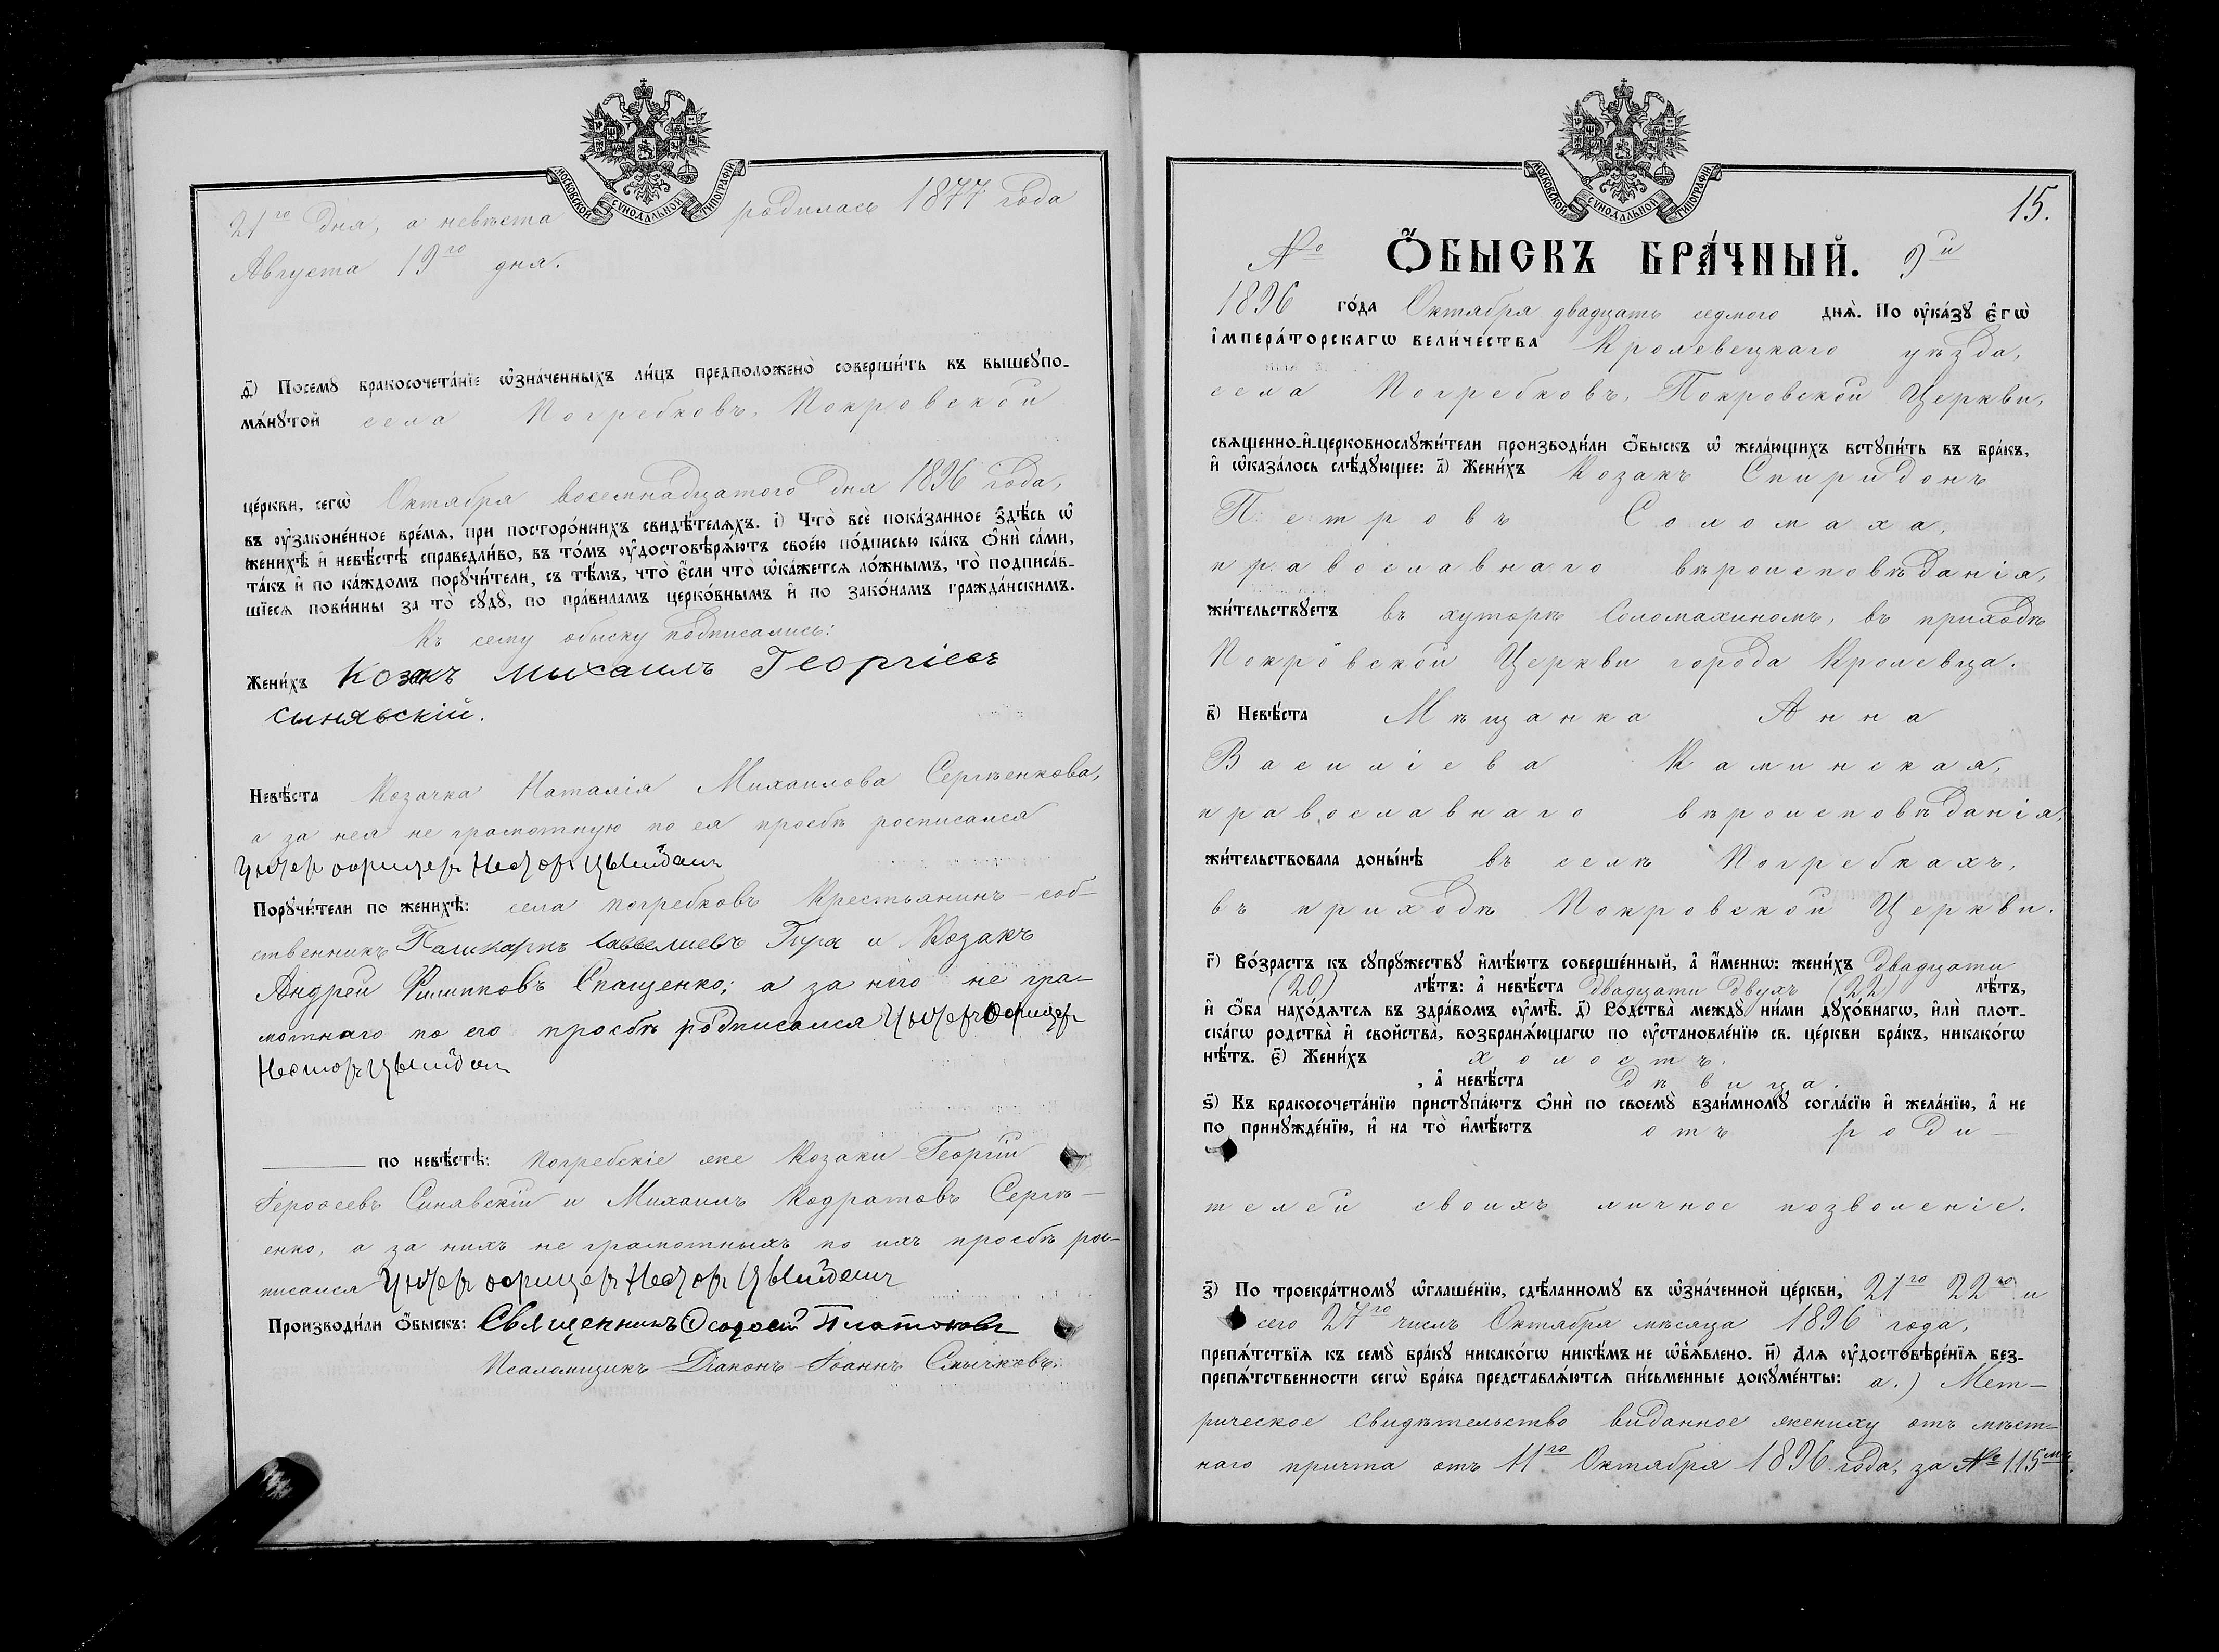 МОСКОВСКОЙ СУНОДАЛЬНОЙ ТИПОГРАФІИ
21го дня, а невѣста родилась 1877 года
Августа 19го дня.
д҃) Посемꙋ бракосочета́нїе ѡ҆зна́ченныхъ ли́цъ предположено̀ соверши́ть въ вышеꙋпо-
мѧ́нꙋтой села Погребковъ, Покровской
це́ркви, сегѡ̀ Октября восемнадцатого дня 1896 года,
въ ᲂу҆зако́ненное вре́мѧ, при посторо́ннихъ свидѣ́телѧхъ. і҃) Что̀ всѐ пока́занное здѣ́сь ѡ҆
женихѣ̀ и҆ невѣ́стѣ справедли́во, въ то́мъ ᲂу҆достовѣрѧ́ютъ свое́ю по́дписью ка́къ ѻ҆нѝ са́ми,
та́къ и҆ по ка́ждомъ порꙋчи́тели, съ тѣ́мъ, что̀ є҆́сли что̀ ѡ҆ка́жетсѧ ло́жнымъ, то̀ подписа́в-
шїесѧ пови́нны за то̀ сꙋдꙋ̀, по пра́виламъ церко́внымъ и҆ по зако́намъ гражда́нскимъ.
Къ сему обыску подписались:
Жени́хъ Козакъ Михаилъ Георгіевъ
Синявскій.
Невѣ́ста Козачка Наталія Михаилова Сергѣенкова,
а за нея не грамотную по ея просбѣ росписался
Унтер офицер Нестор Цыйдаш
Порꙋчи́тели по женихѣ̀: села Погребковъ Крестьянинъ-соб-
ственникъ Поликарпъ Савелиевъ Гура и Козакъ
Андрей Филипповъ Спащенко; а за него не гра-
мотнаго по его просбѣ подписался Унтер Офицер
Нестор Цыйдаш
по невѣ́стѣ: Погребскіе же Козаки Георгій
Іерофеевъ Синявскій и Михаилъ Кодратовъ Сергѣ-
енко, а за нихъ не грамотныхъ по ихъ просбѣ рос-
писался Унтер офицер Нестор Цыйдаш
Производи́ли ѻ҆́быскъ: Священникъ Феодосій Платонов
Псаломщикъ-Діаконъ Іоаннъ Смычковъ.
МОСКОВСКОЙ СУНОДАЛЬНОЙ ТИПОГРАФІИ
15.
№ Ѻ҆́БЫСКЪ БРА́ЧНЫЙ. 9й
1896 го́да Октября двадцать седмого днѧ̀. По ᲂу҆ка́зꙋ є҆гѡ̀
і҆мпера́торскагѡ вели́чества Кролевецкаго уѣзда,
села Погребковъ, Покровской Церкви,
свѧще́нно-и҆-церковнослꙋжи́тели производи́ли ѻ҆́быскъ ѡ҆ жела́ющихъ встꙋпи́ть въ бра́къ,
и҆ ѡ҆каза́лось слѣ́дꙋющее: а҃) Жени́хъ Козакъ Спиридонъ
Петровъ Соломаха,
православнаго вѣроисповѣданія,
жи́тельствꙋетъ въ хуторѣ Соломахиномъ, въ приходѣ
Покровской Церкви города Кролевца.
в҃) Невѣ́ста Мѣщанка Анна
Василіева Каминская,
православнаго вѣроисповѣданія,
жи́тельствовала доны́нѣ въ селѣ Погребкахъ,
въ приходѣ Покровской Церкви.
г҃) Во́зрастъ къ сꙋпрꙋ́жествꙋ и҆мѣ́ютъ соверше́нный, а҆ и҆́менно: жени́хъ двадцати
(20) лѣ́тъ: а҆ невѣ́ста двадцати двухъ (22) лѣ́тъ,
и҆ ѻ҆́ба нахо́дѧтсѧ въ здра́вомъ ᲂу҆мѣ̀. д҃) Родства̀ междꙋ̀ ни́ми дꙋхо́внагѡ, и҆лѝ плот-
ска́гѡ родства̀ и҆ свойства̀, возбранѧ́ющагѡ по ᲂу҆становле́нїю св. це́ркви бра́къ, никако́гѡ
нѣ́тъ. є҃) Жени́хъ холостъ.
, а҆ невѣ́ста дѣвица.
ѕ҃) Къ бракосочета́нїю пристꙋпа́ютъ ѻ҆нѝ по своемꙋ̀ взаи́мномꙋ согла́сїю и҆ жела́нїю, а҆ не
по принꙋжде́нїю, и҆ на то̀ и҆мѣ́ютъ отъ роди-
телей своихъ личное позволеніе.
з҃) По троекра́тномꙋ ѡ҆глаше́нїю, сдѣ́ланномꙋ въ ѡ҆зна́ченной це́ркви, 21го 22го и
сего 27го числъ Октября мѣсяца 1896 года,
препѧ́тствїѧ къ семꙋ̀ бра́кꙋ никако́гѡ никѣ́мъ не ѡ҆бъѧ́влено. и҃) Длѧ ᲂу҆достовѣре́нїѧ без-
препѧ́тственности сегѡ̀ бра́ка представлѧ́ютсѧ пи́сьменные докꙋме́нты: а.) Мет-
рическое свидѣтельство виданное жениху отъ мѣст-
наго причта отъ 11го Октября 1896 года, за № 115мъ.